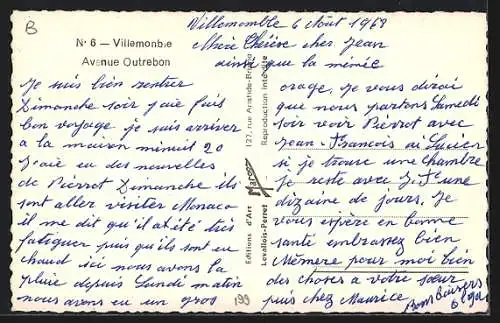 B
Villemomble 6 Août 1968
N° 6 — Villemomble
Avenue Outrebon
Chère Thérèse cher Jean
ainsi que la mémée
Je suis bien rentrer
Dimanche soir j'aie fais
bon voyage je suis arriver
a la maison minuit 20
J'aie eu des nouvelles
de Pierrot Dimanche ils
sont aller visiter Monaco
il me dit qu'il at été très
fatiguer puis qu'ils ont eu
chaud ici nous avons la
pluie depuis Lundi matin
nous avons eu un gros
199
Editions d'Art
Levallois-Perret
127, rue Aristide-Briand
Reproduction interdite
orage. Je vous dirai
que nous partons Samedi
soir voir Pierrot avec
Jean-François
si je trouve une Chambre
je reste avec J.F. une
dizaine de jours. Je
vous espère en bonne
santé embrassez bien
Mémère pour moi bien
des choses a votre sœur
puis chez Maurice
Bons Baisers